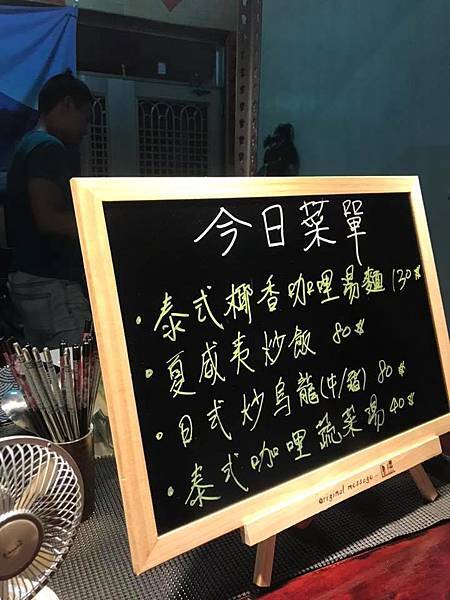 今日菜單
·泰式椰香咖哩湯麵 130元
·夏威夷炒飯 80元
·日式炒烏龍(牛/豬) 80元
·泰式咖哩蔬菜湯 40元
original message